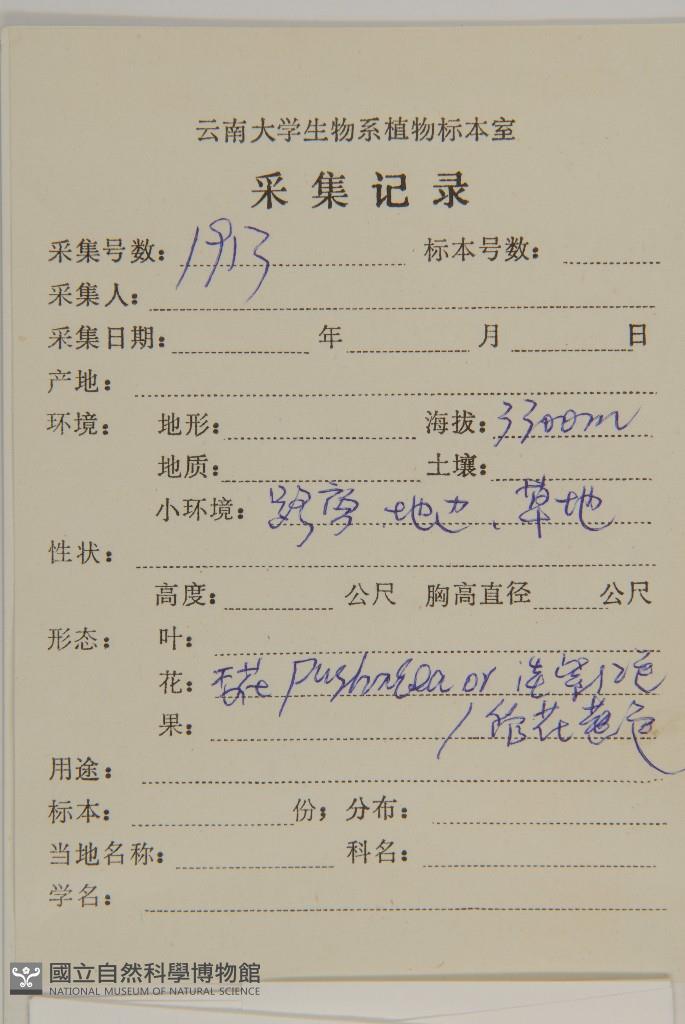 云南大学生物系植物标本室
采集记录
采集号数: 1913 标本号数:
采集人:
采集日期: 年 月 日
产地:
环境: 地形: 海拔: 3300m
地质: 土壤:
小环境: 路旁、地边、草地
性状:
高度: 公尺 胸高直径 公尺
形态: 叶:
花: or 淡紫红色
果: 花黄色
用途:
标本: 份; 分布:
当地名称: 科名:
学名:
國立自然科學博物館
NATIONAL MUSEUM OF NATURAL SCIENCE